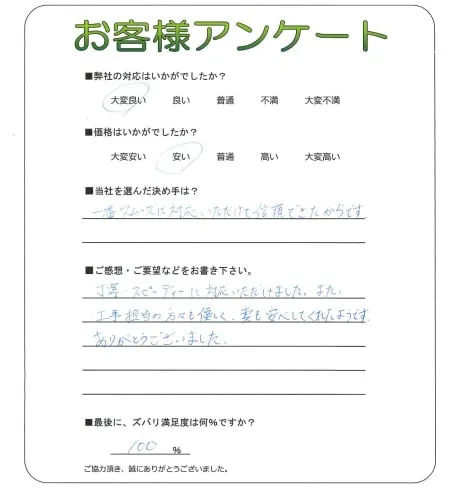 お客様アンケート
■弊社の対応はいかがでしたか？
大変良い 良い 普通 不満 大変不満
■価格はいかがでしたか？
大変安い 安い 普通 高い 大変高い
■当社を選んだ決め手は？
一番スムーズに対応いただけて信頼できたからです
■ご感想・ご要望などをお書き下さい。
丁寧・スピーディーに対応いただけました。また、
工事担当の方々も優しく、妻も安心してくれたようです。
ありがとうございました。
■最後に、ズバリ満足度は何％ですか？
100 ％
ご協力頂き、誠にありがとうございました。